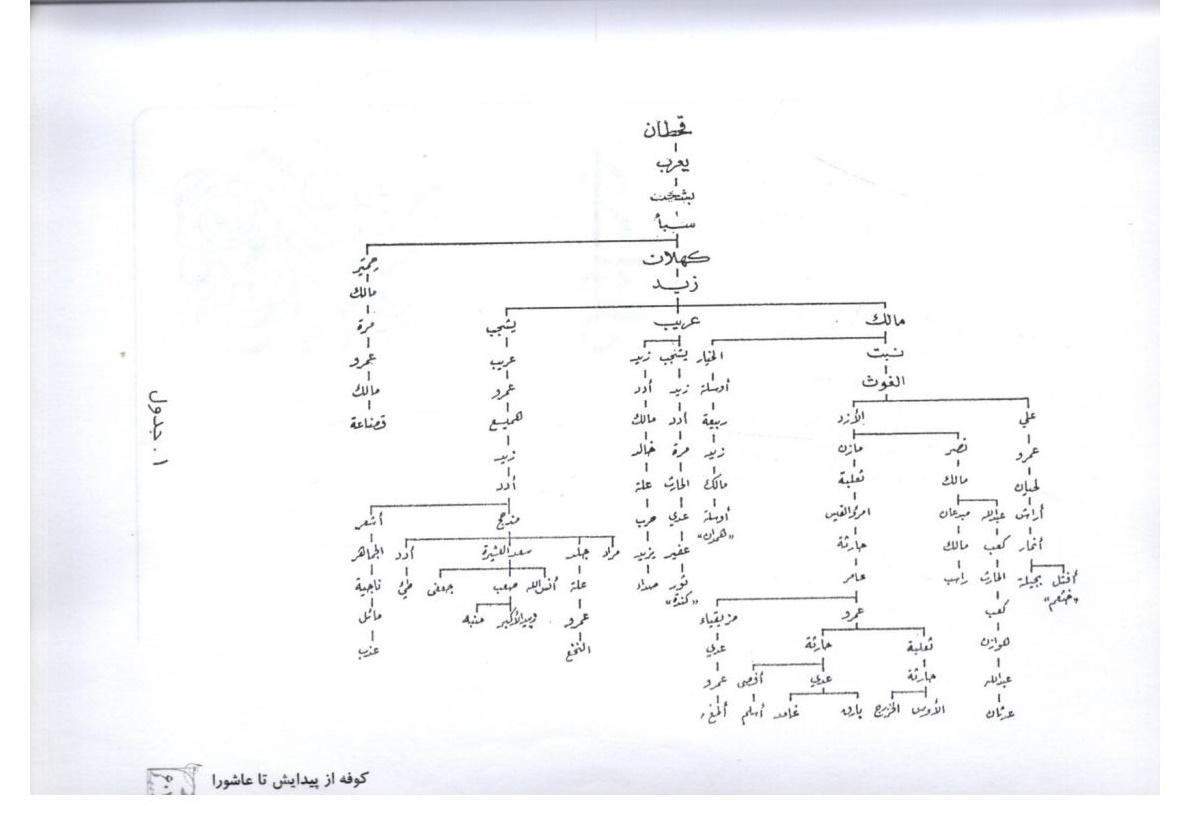 قحطان
يعرب
سبأ
كهلان
زيد
حمير
مالك
مرة
عمرو
مالك
قضاعة
يشجب عريب مالك
عريب
عمرو
هميسع
زيد
أدد
زيد يشجب الخيار نبت
الغوث
أدد زيد أوسلة
مالك أدد ربيعة
خالد مرة زيد
علة الحارث مالك
حرب عدي أوسلة
"همدان"
يزيد عفير
صداء ثور
"كندة"
الأزد علي
مازن نصر عمرو
ثعلبة مالك لحيان
امرؤ القيس ميدعان عبدالله أراش
حارثة مالك كعب أنمار
عامر راسب الحارث بجيلة أفتل
"خثعم"
كعب
هوازن
عبدالله
مزيقياء عمرو
عدي حارثة ثعلبة
عمرو أفصى عدي حارثة
أسلم غامد بارق الخزرج الأوس
أشعر مذحج
الجماهر أدد سعد العشيرة جلد مراد
ناجية طيّ جعفى صعب أنس الله علة
منبه عمرو
النخع
عذب
۱. جدول
کوفه از پیدایش تا عاشورا